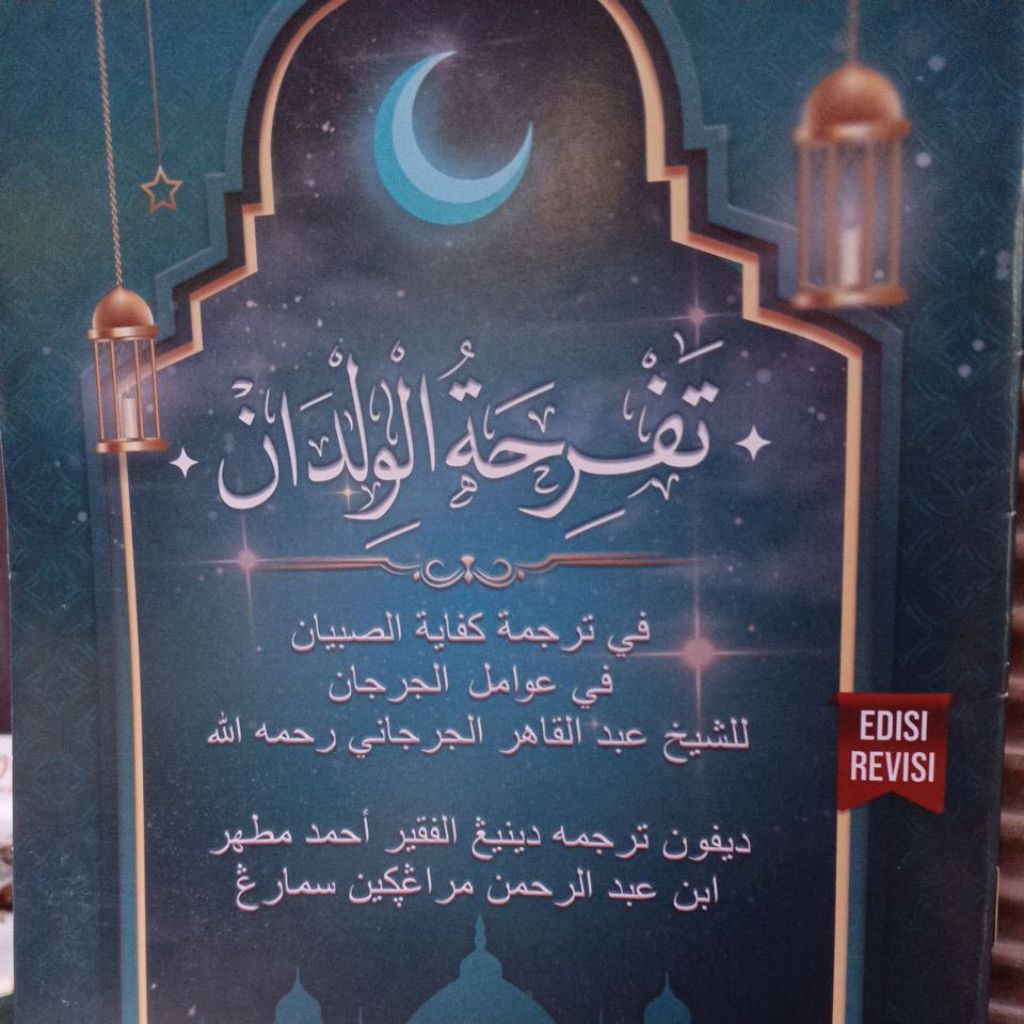 تَفْرِحَةُ الْوِلْدَانْ
في ترجمة كفاية الصبيان
في عوامل الجرجان
للشيخ عبد القاهر الجرجاني رحمه الله
ديفون ترجمه دينيڠ الفقير أحمد مطهر
ابن عبد الرحمن مراڠڮين سمارڠ
EDISI
REVISI